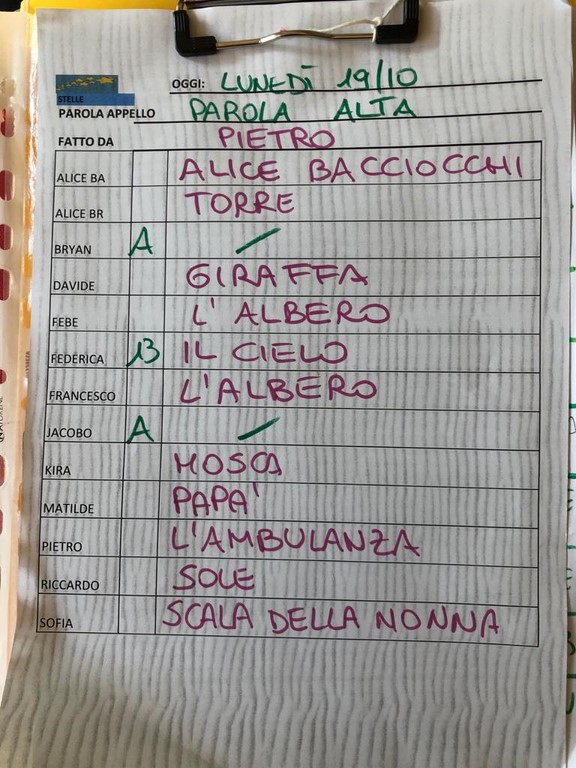 OGGI: LUNEDÌ 19/10
STELLE
PAROLA APPELLO PAROLA ALTA
FATTO DA PIETRO
ALICE BA ALICE BACCIOCCHI
ALICE BR TORRE
BRYAN A /
DAVIDE GIRAFFA
FEBE L'ALBERO
FEDERICA 13 IL CIELO
FRANCESCO L'ALBERO
JACOBO A /
KIRA MOSCA
MATILDE PAPA'
PIETRO L'AMBULANZA
RICCARDO SOLE
SOFIA SCALA DELLA NONNA